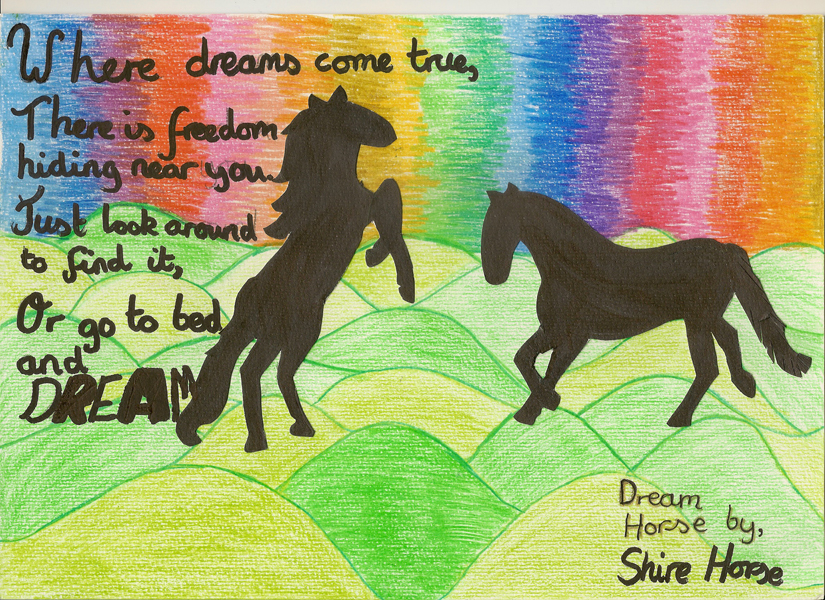 Where dreams come true,
There is freedom
hiding near you.
Just look around
to find it,
Or go to bed
and
DREAM
Dream
Horse by,
Shire Horse